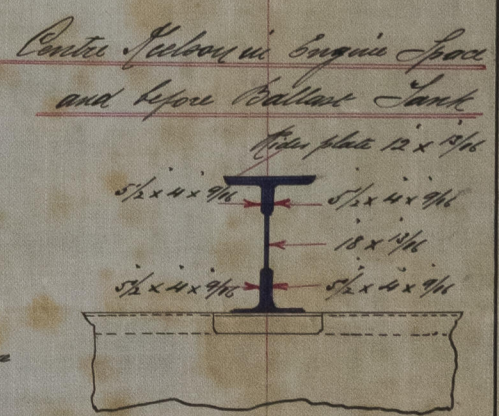 Centre Keelson in Engine Space
and before Ballast Tank
Rider plate 12 x 13/16
5 1/2 x 4 x 9/16 5 1/2 x 4 x 9/16
18 x 13/16
5 1/2 x 4 x 9/16 5 1/2 x 4 x 9/16